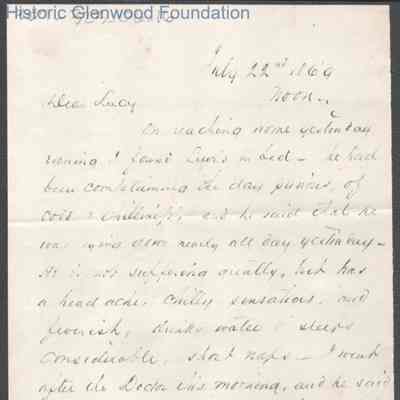 Historic Glenwood Foundation
July 22nd 1869
Noon.
Dear Lucy
On reaching home yesterday
evening I found in bed - he had
been complaining the day previous, of
cold & chilliness, and he said that he
was lying down nearly all day yesterday -
He is not suffering greatly, but has
a head ache, chilly sensations, and
feverish, drinks water & sleeps
considerable, short naps - I went
after the Doctor this morning, and he said